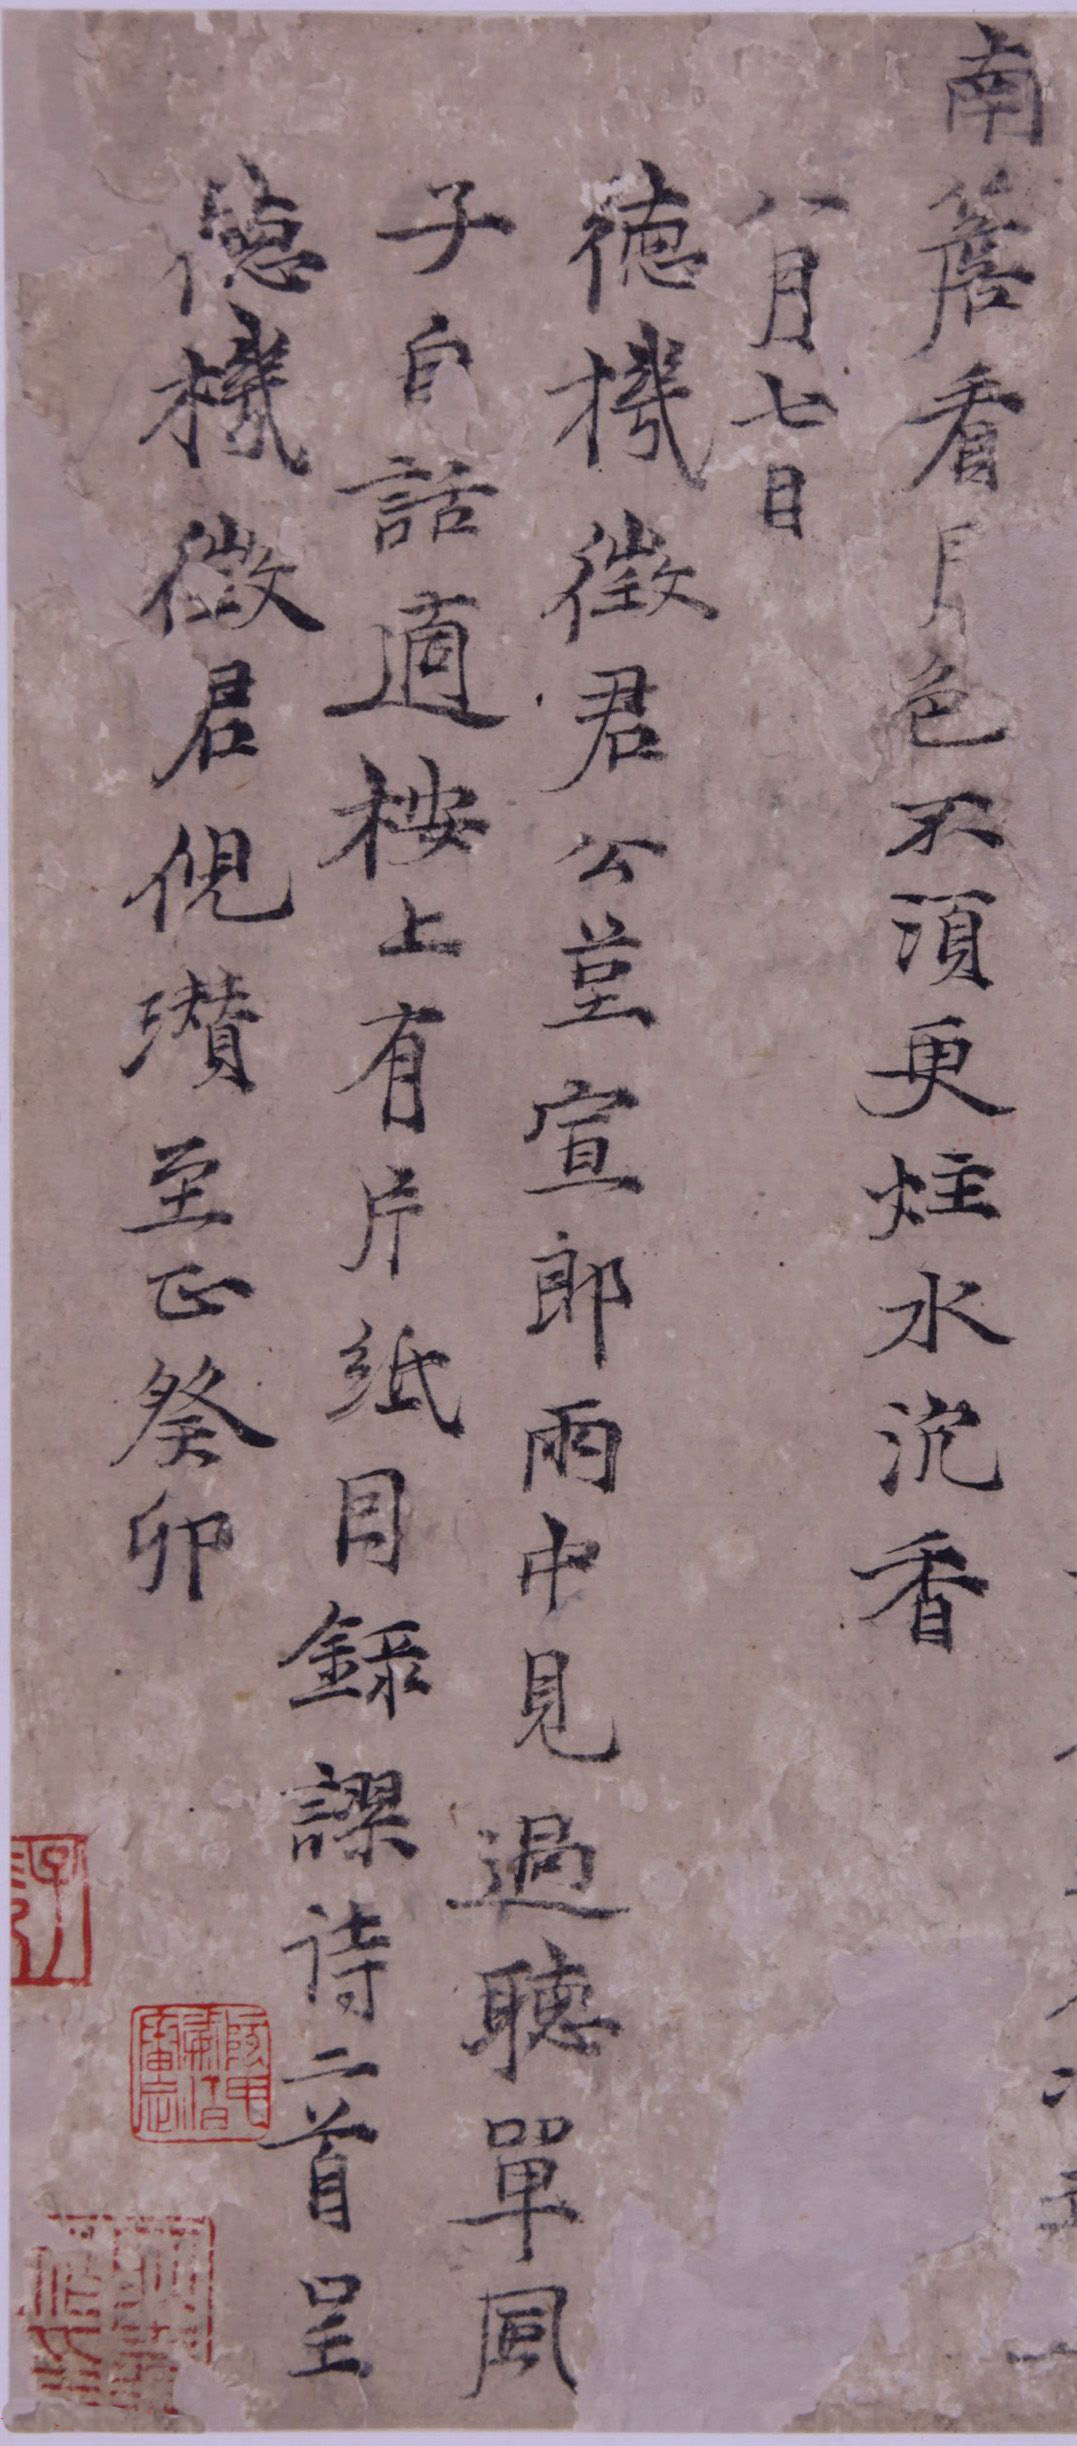 南簷看月色不須更炷水沉香
八月七日
德機徵君公莖宣郎雨中見過聽單風
子自話適桉上有片紙目錄謬詩二首呈
德機徵君倪瓚至正癸卯